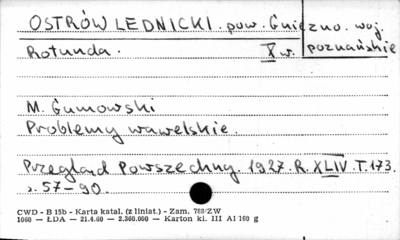 OSTRÓW LEDNICKI. pow. Gniezno. woj. poznańskie
Rotunda. X w.
M. Gumowski
Problemy wawelskie.
Przegląd Powszechny. 1927. R. XLIV. T. 173.
s. 57-90.
CWD - B 15b - Karta katal. (z liniat.) - Zam. 788/ZW
1060 — ŁDA — 21.4.60 — 2.360.000 — Karton kl. III A1 160 g